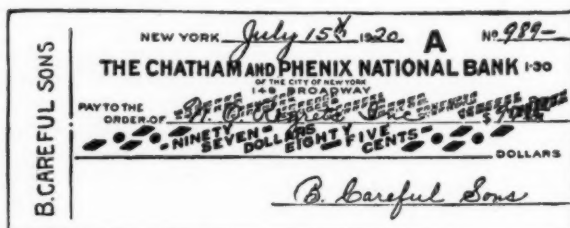 B. CAREFUL SONS
NEW YORK July 15th 1920 A No 989-
THE CHATHAM AND PHENIX NATIONAL BANK 1-30
OF THE CITY OF NEW YORK
149 BROADWAY
PAY TO THE
ORDER OF Inc $
NINETY SEVEN DOLLARS EIGHTY FIVE CENTS
DOLLARS
B. Careful Sons